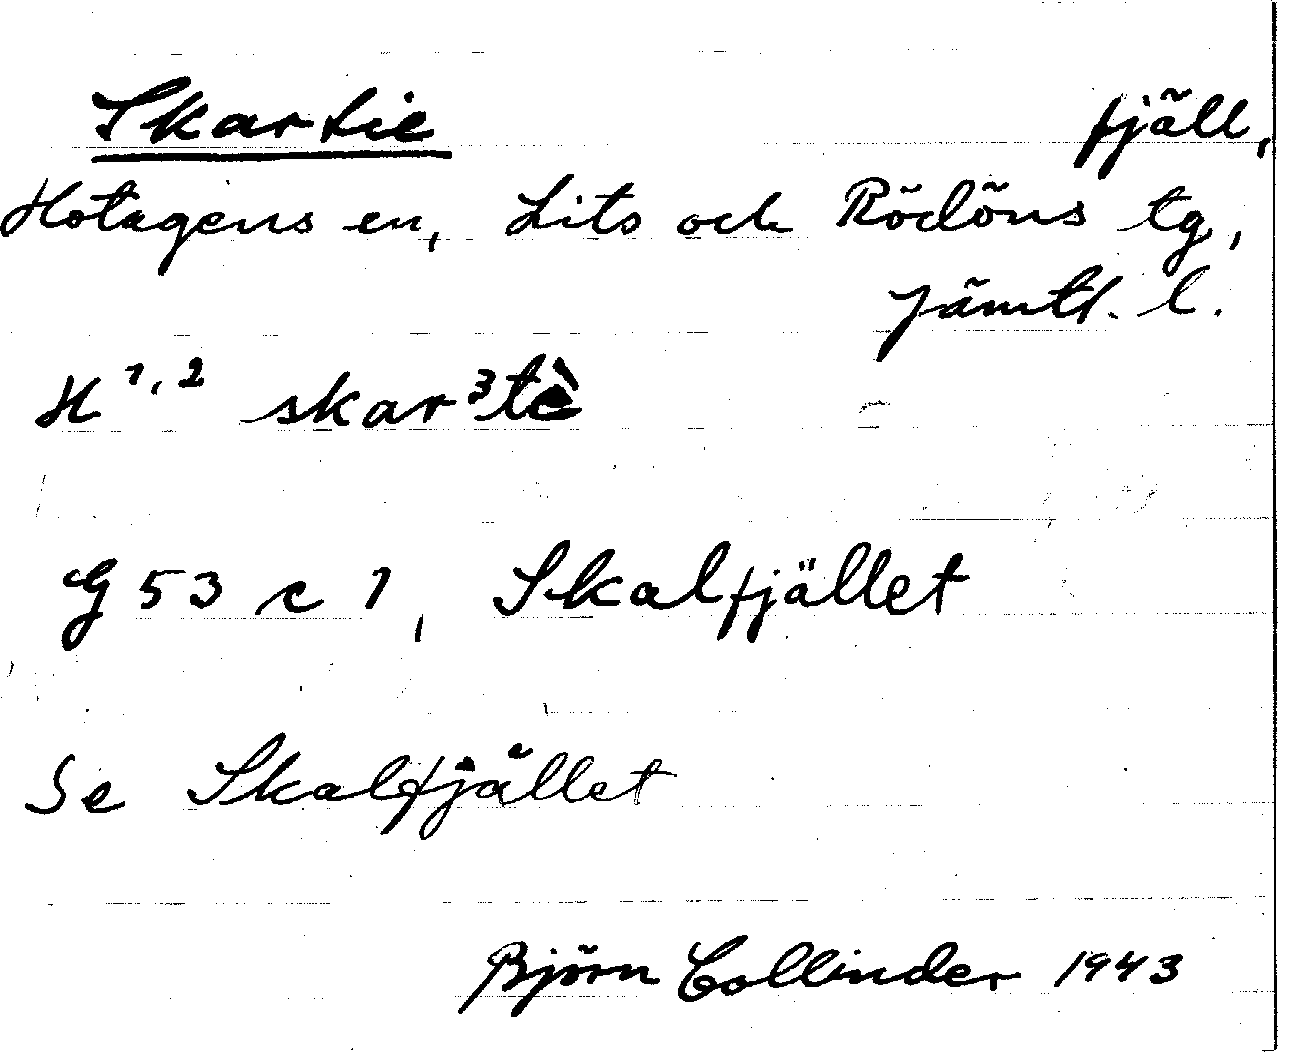 Skartie fjäll,
Hotagens sn, Lits och Rödöns tg,
Jämtl. l.
H 1,2 skar³tè
G 53 c 1, Skalfjället
Se Skalfjället
Björn Collinder 1943